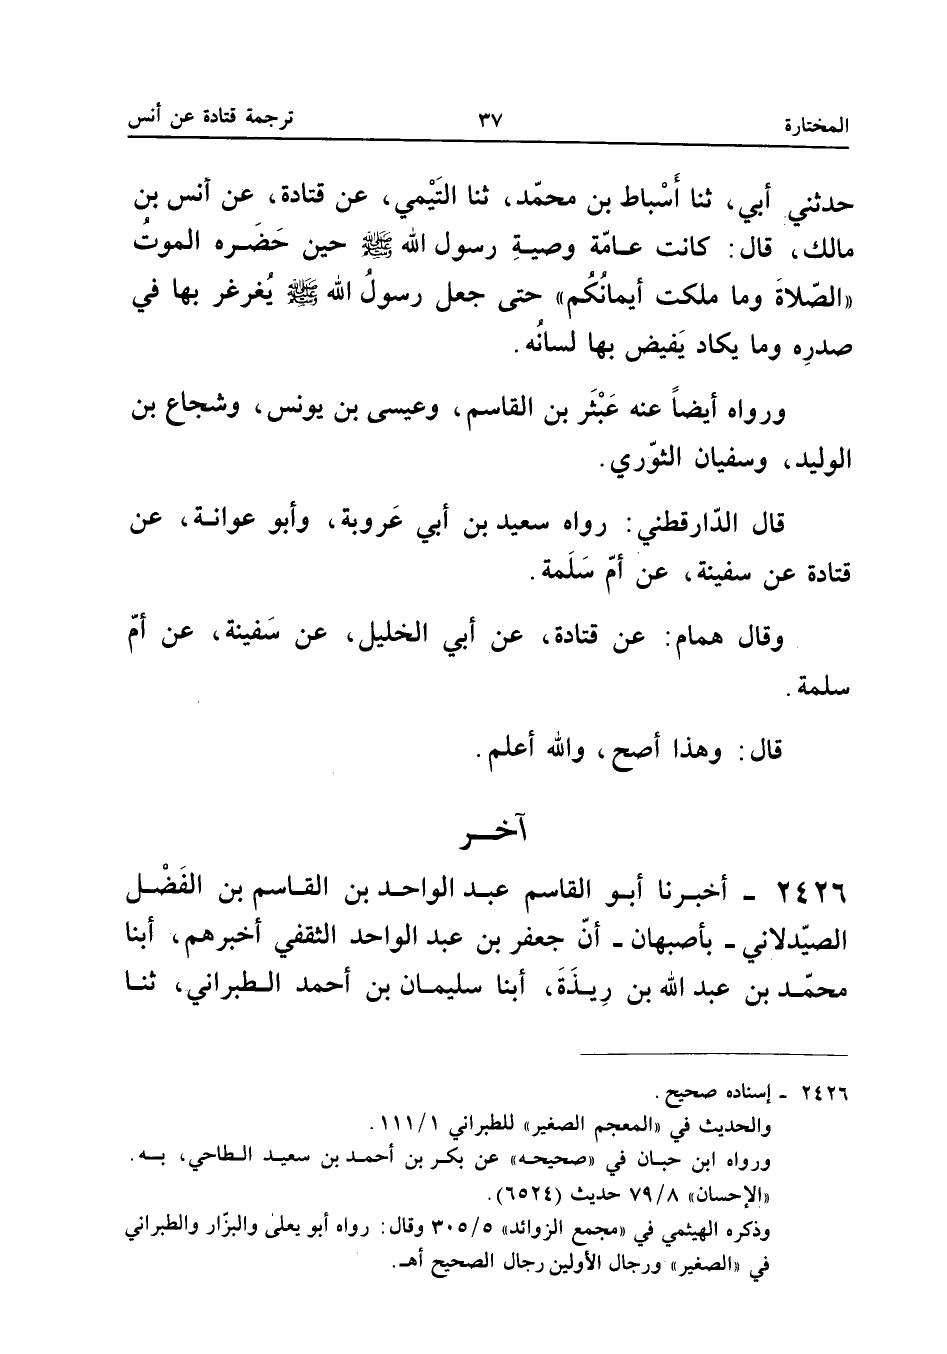 المختارة ٣٧ ترجمة قتادة عن أنس
حدثني أبي، ثنا أَسْباط بن محمّد، ثنا التَيْمي، عن قتادة، عن أنس بن
مالك، قال: كانت عـامّة وصيةِ رسول الله ﷺ حين حَضَره الموتُ
«الصّلاةَ وما ملكت أيمانُكُم» حتى جعل رسولُ الله ﷺ يُغرغر بها في
صدرِه وما يكاد يَفيض بها لسانُه.
ورواه أيضاً عنه عَبْثَر بن القاسم، وعيسى بن يونس، وشجاع بن
الوليد، وسفيان الثوّري.
قال الدّارقطني: رواه سعيد بن أبي عَروبة، وأبو عوانـة، عن
قتادة عن سفينة، عن أمّ سَلَمة.
وقال همام: عن قتادة، عن أبي الخليل، عن سَفينة، عن أمّ
سلمة.
قال: وهذا أصح، والله أعلم.
آخـر
٢٤٢٦ ـ أخبـرنا أبـو القاسم عبـد الواحـد بن القـاسم بن الفَضْـل
الصيّدلاني ـ بأصبهان ـ أنّ جعفر بن عبد الواحد الثقفي أخبرهم، أبنا
محمّـد بن عبد الله بن رِيـذَةَ، أبنا سليمـان بن أحمد الـطبراني، ثنـا
٢٤٢٦ ـ إسناده صحيح.
والحديث في «المعجم الصغير» للطبراني ١١١/١.
ورواه ابن حبـان في «صحيحـه» عن بكـر بن أحمـد بن سعيـد الـطاحي، بـه.
«الإحسان» ٧٩/٨ حديث (٦٥٢٤).
وذكره الهيثمي في «مجمع الزوائد» ٣٠٥/٥ وقال: رواه أبو يعلىٰ والبزّار والطبراني
في «الصغير» ورجال الأولين رجال الصحيح أهـ.